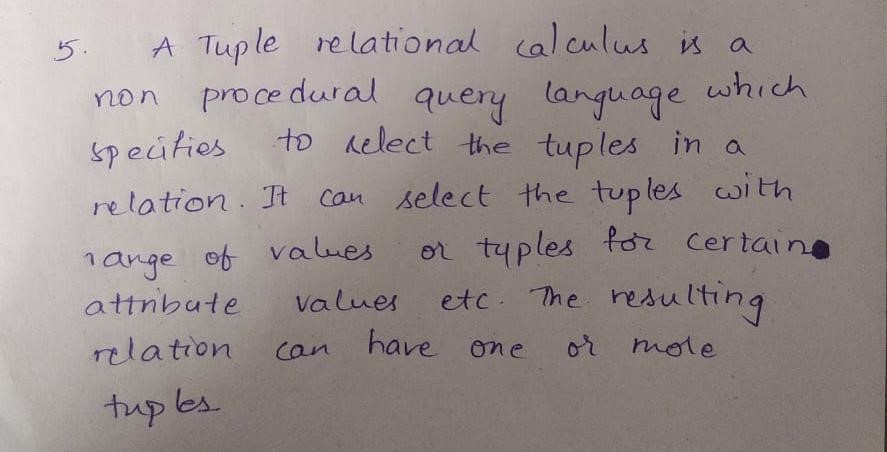 5. A Tuple relational calculus is a
non procedural query language which
specifies to select the tuples in a
relation. It can select the tuples with
range of values or typles for certain
attribute values etc. The resulting
relation can have one or more
tuples